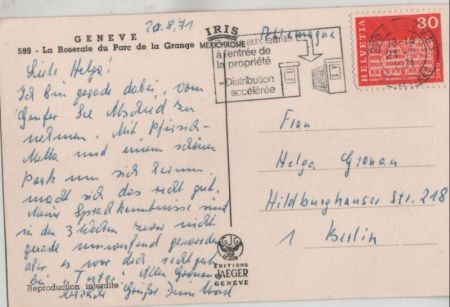 GENEVE
20.8.71
599 - La Roseraie du Parc de la Grange
IRIS
MEXICHROME
Allemagne
aux lettres
à l'entrée de
la propriété
Distribution
accélérée
HELVETIA
30
Liebe Helga!
Ich bin gerade dabei, vom
Genfer See Abschied zu
nehmen. Mit Pfirsich-
Melba und einem schönen
Park um sich herum
macht sich das recht gut.
Meine Sprachkenntnisse sind
in den 3 Wochen zwar nicht
gerade umwerfend geworden
aber es war doch recht gut
bei
Allen
Grüße Deine
Frau
Helga Gronau
Hildburghauser Str. 218
1 Berlin
Reproduction interdite
EDITIONS
JAEGER
GENÈVE